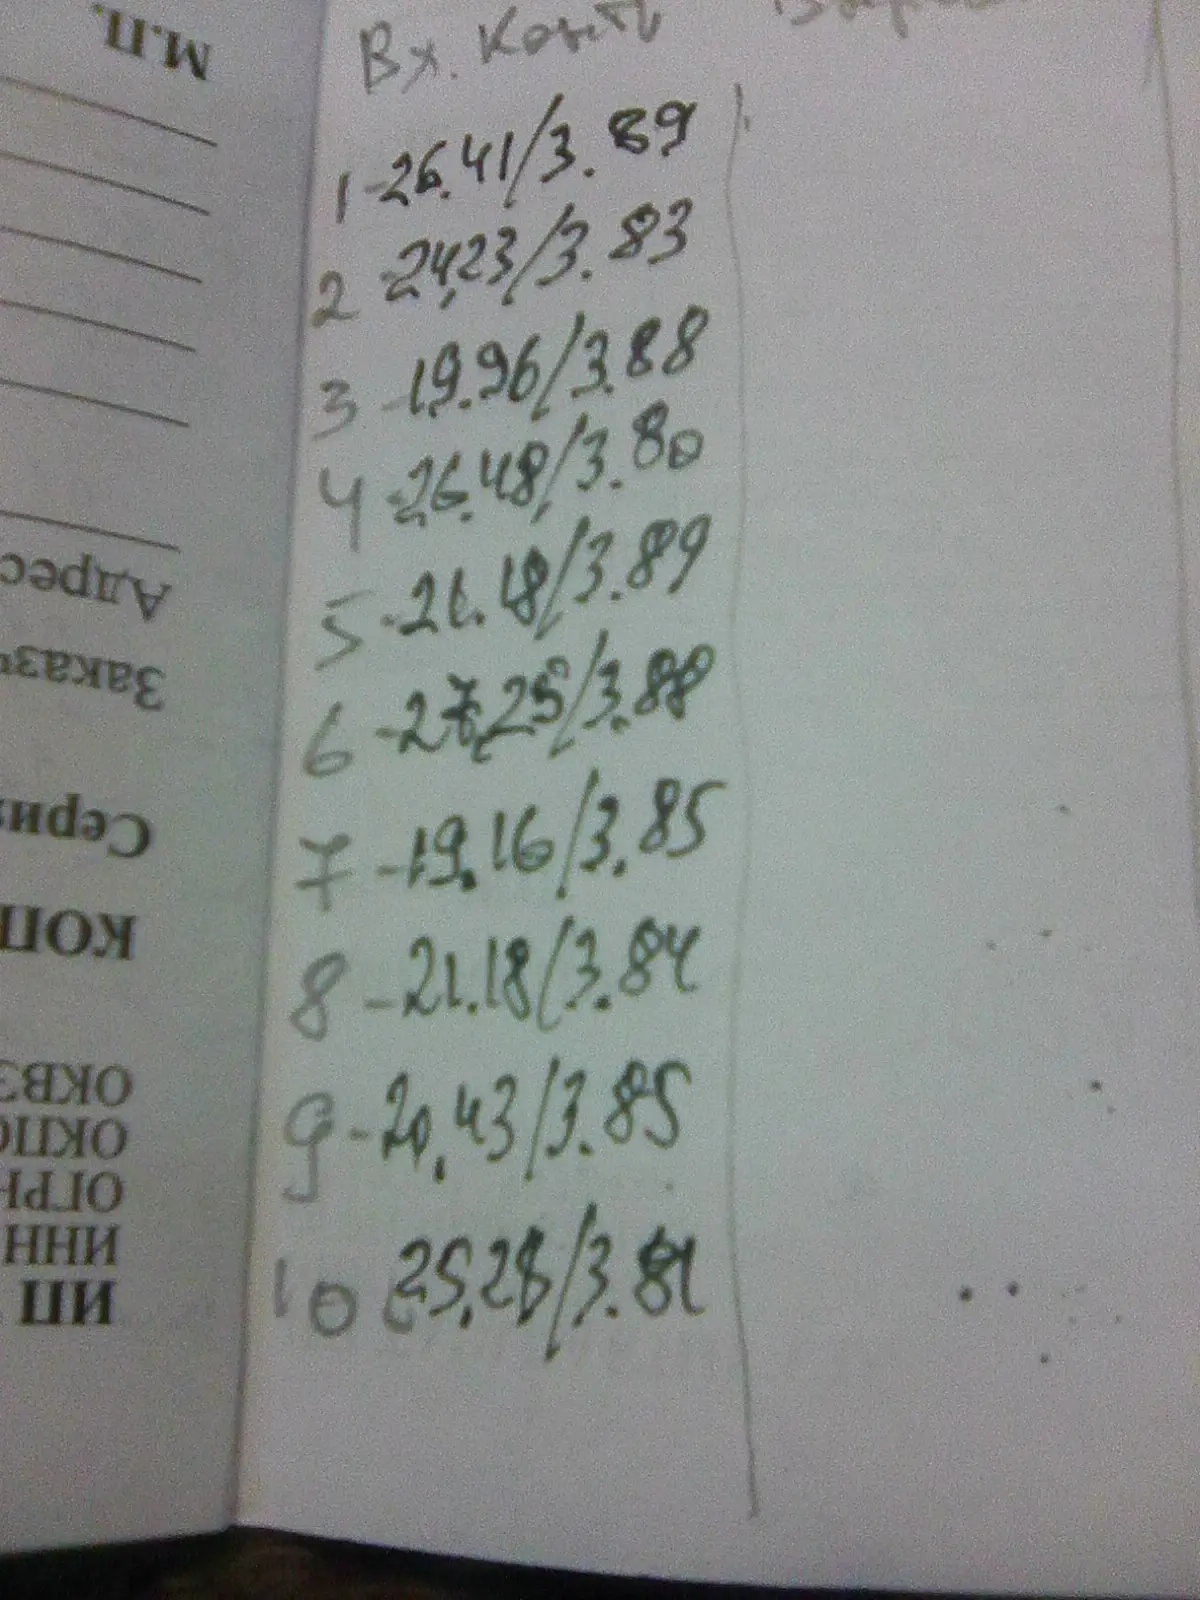 Вх. Конть
1-26.41/3.89
2-24,23/3.83
3-19.96/3.88
4-26.48/3.80
5-21.18/3.89
6-27,25/3.88
7-19.16/3.85
8-21.18/3.84
9-20,43/3.85
10 25,28/3.81
М.П.
Адрес
Заказч
Серия
КОП
ОКВЭ
ОКПО
ОГРН
ИНН
ИП